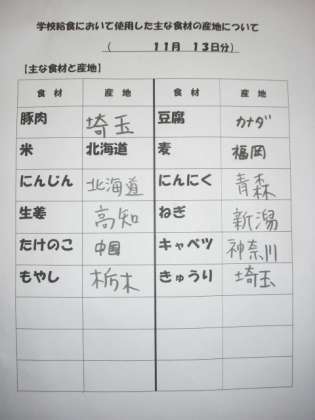 学校給食において使用した主な食材の産地について
（ 11月 13日分）
【主な食材と産地】
食材 産地 食材 産地
豚肉 埼玉 豆腐 カナダ
米 北海道 麦 福岡
にんじん 北海道 にんにく 青森
生姜 高知 ねぎ 新潟
たけのこ 中国 キャベツ 神奈川
もやし 栃木 きゅうり 埼玉